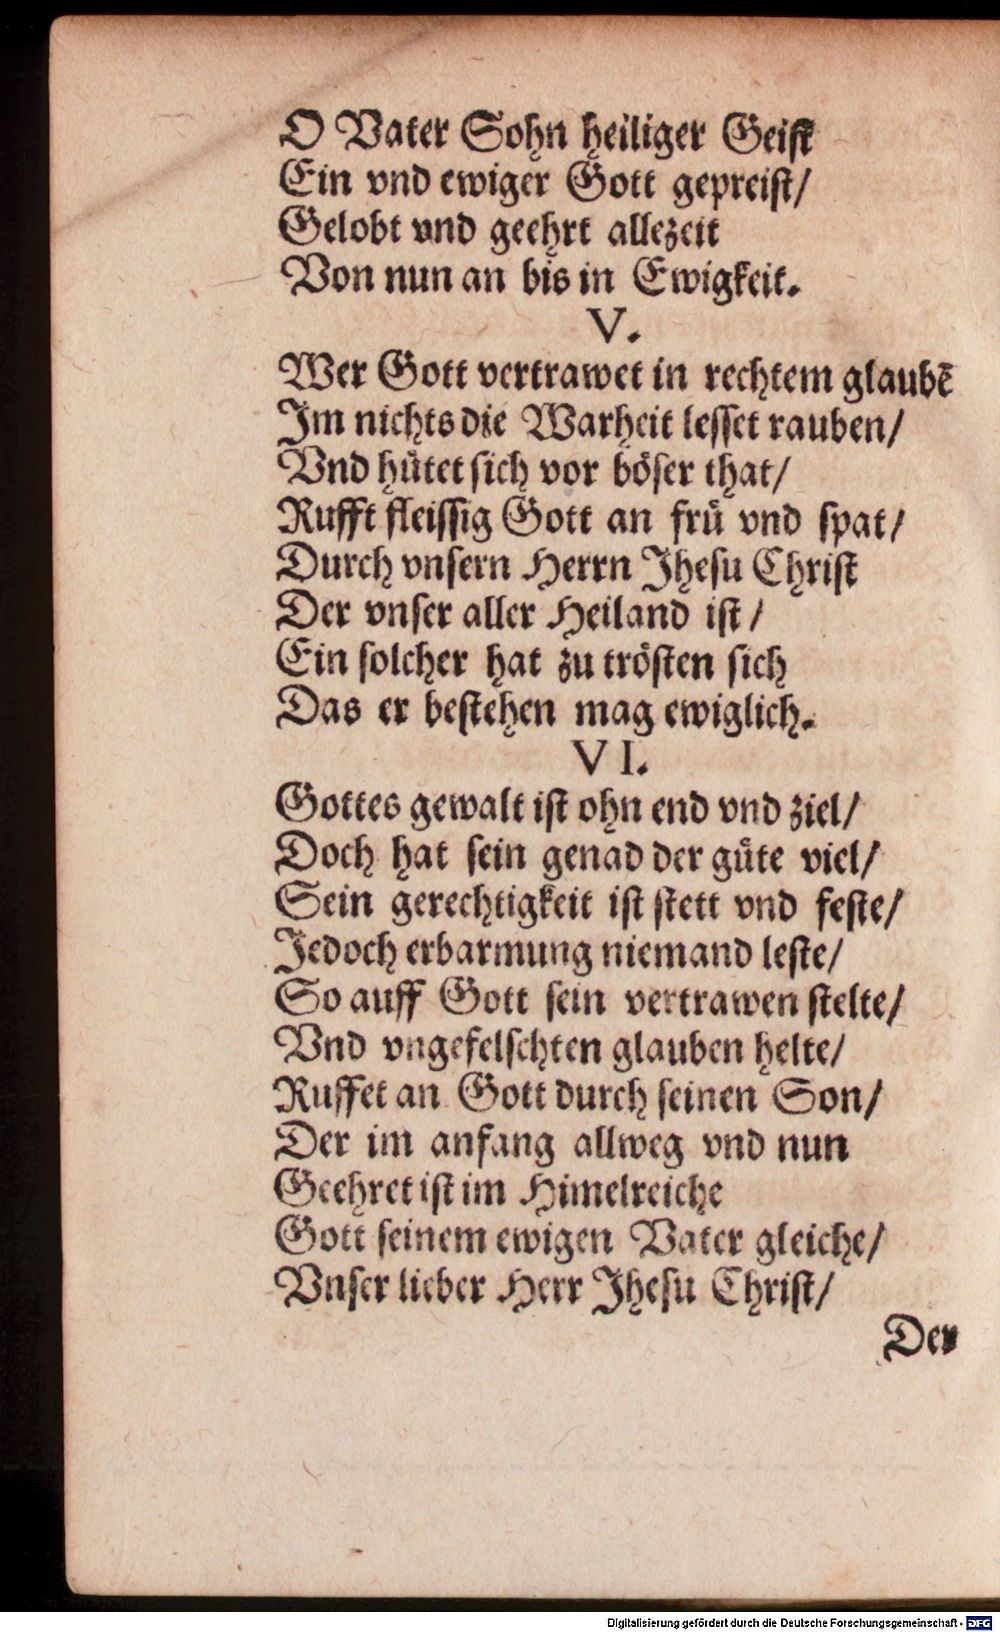 O Vater Sohn heiliger Geist
Ein vnd ewiger Gott gepreist/
Gelobt vnd geehrt allezeit
Von nun an bis in Ewigkeit.
V.
Wer Gott vertrawet in rechtem glaubē
Im nichts die Warheit lesset rauben/
Vnd hütet sich vor böser that/
Rufft fleissig Gott an frü vnd spat/
Durch vnsern Herrn Jhesu Christ
Der vnser aller Heiland ist/
Ein solcher hat zu trösten sich
Das er bestehen mag ewiglich.
VI.
Gottes gewalt ist ohn end vnd ziel/
Doch hat sein genad der güte viel/
Sein gerechtigkeit ist stett vnd feste/
Jedoch erbarmung niemand leste/
So auff Gott sein vertrawen stelte/
Vnd vngefelschten glauben helte/
Ruffet an Gott durch seinen Son/
Der im anfang allweg vnd nun
Geehret ist im Himelreiche
Gott seinem ewigen Vater gleiche/
Vnser lieber Herr Jhesu Christ/
Der
Digitalisierung gefördert durch die Deutsche Forschungsgemeinschaft - DFG